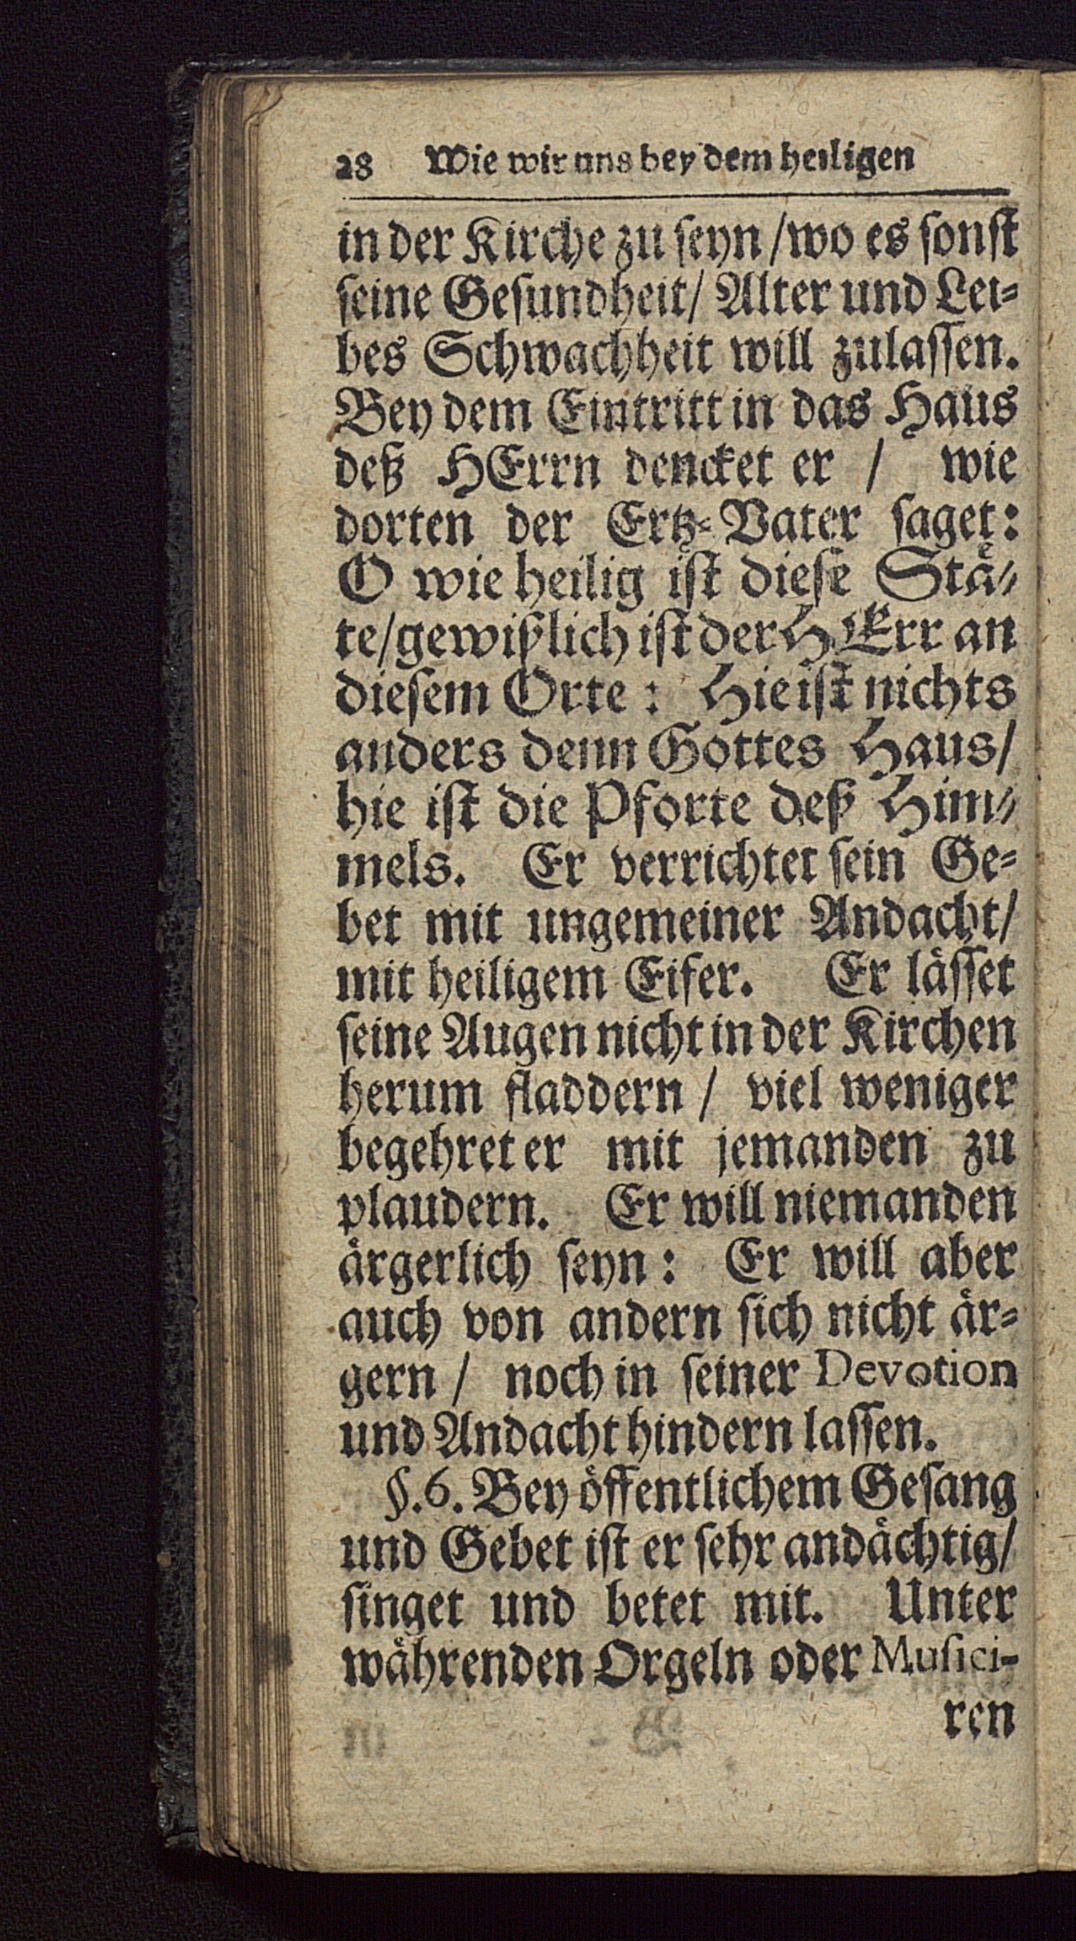 28 Wie wir uns bey dem heiligen
in der Kirche zu seyn / wo es sonst
seine Gesundheit / Alter und Lei-
bes Schwachheit will zulassen.
Bey dem Eintritt in das Haus
deß HErrn dencket er / wie
dorten der Ertz-Vater saget:
O wie heilig ist diese Stä-
te / gewißlich ist der HErr an
diesem Orte: Hie ist nichts
anders denn Gottes Haus /
hie ist die Pforte deß Him-
mels. Er verrichtet sein Ge-
bet mit ungemeiner Andacht /
mit heiligem Eifer. Er lässet
seine Augen nicht in der Kirchen
herum fladdern / viel weniger
begehret er mit jemanden zu
plaudern. Er will niemanden
ärgerlich seyn: Er will aber
auch von andern sich nicht är-
gern / noch in seiner Devotion
und Andacht hindern lassen.
§. 6. Bey öffentlichem Gesang
und Gebet ist er sehr andächtig /
singet und betet mit. Unter
währenden Orgeln oder Musici-
ren